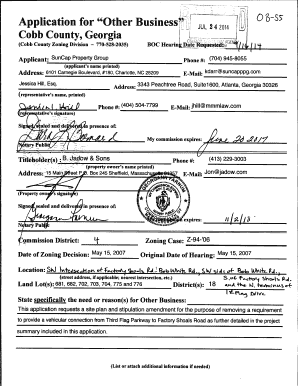 OB-55
Application for "Other Business"
Cobb County, Georgia
JUL 24 2014
(Cobb County Zoning Division – 770-528-2035) BOC Hearing Date Requested: 9/16/14
Applicant: SunCap Property Group Phone #: (704) 945-8055
(applicant's name printed)
Address: 6101 Carnegie Boulevard, #180, Charlotte, NC 28209 E-Mail:
Jessica Hill, Esq. Address: 3343 Peachtree Road, Suite1600, Atlanta, Georgia 30326
(representative's name, printed)
Phone #: (404) 504-7799 E-Mail: jhill@mmmlaw.com
(representative's signature)
Signed, sealed and delivered in presence of:
My commission expires: June 20 2017
Notary Public
Titleholder(s): B. Jadow & Sons Phone #: (413) 229-3003
(property owner's name printed)
Address: 15 Main Street P.O. Box 245 Sheffield, Massachusetts E-Mail: Jon@jadow.com
(Property owner's signature)
Signed, sealed and delivered in presence of:
expires: 11/2/18
Notary Public
Commission District: 4 Zoning Case: Z-94-'06
Date of Zoning Decision: May 15, 2007 Original Date of Hearing: May 15, 2007
Location: SW Intersection of Factory Shoals Rd, Bob White Rd, SW side of Bob White Rd,
(street address, if applicable; nearest intersection, etc.) S. of Factory Shoals Rd
Land Lot(s): 681, 682, 702, 703, 704, 775 and 776 District(s): 18 and the N. terminus of
Drive
State specifically the need or reason(s) for Other Business:
This application requests a site plan and stipulation amendment for the purpose of removing a requirement
to provide a vehicular connection from Third Flag Parkway to Factory Shoals Road as further detailed in the project
summary included in this application.
(List or attach additional information if needed)